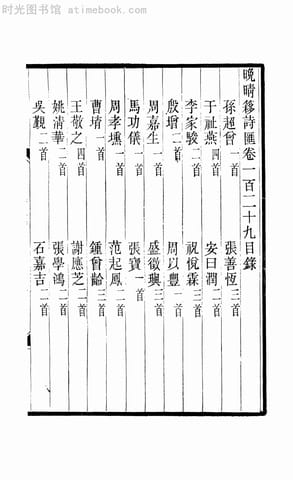 时光图书馆 www.timelib.com
晚晴簃詩匯卷一百二十九目錄
孫超曾一首 張善恆三首
于祉燕四首 安曰潤二首
李家駿二首 祝悅霖三首
殷增二首 周以豐一首
周嘉生一首 盛徵璵三首
馬功儀一首 張寶一首
周孝壎一首 范起鳳二首
曹堉一首 鍾曾齡三首
王敬之四首 謝應芝二首
姚淸華二首 張學鴻二首
吳覲二首 石嘉吉二首